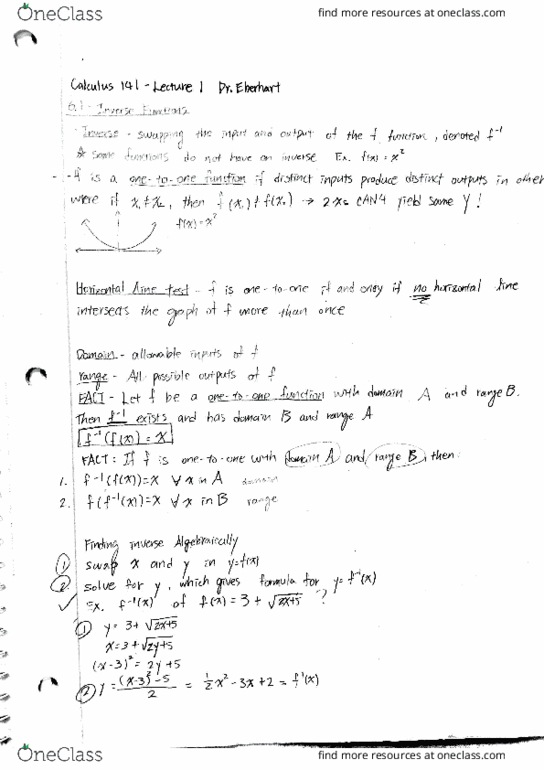 OneClass
find more resources at oneclass.com
Calculus 141 - Lecture 1 Dr. Eberhart
6.1 - Inverse Functions
- Inverse - swapping the input and output of the f. function, denoted f⁻¹
* some functions do not have an inverse Ex. f(x) = x²
- f is a one-to-one function if distinct inputs produce distinct outputs in other
were if x₁ ≠ x₂, then f(x₁) ≠ f(x₂) → 2 x's CAN'T yield same Y!
f(x) = x²
Horizontal line test - f is one-to-one if and only if no horizontal line
intersects the graph of f more than once
Domain - allowable inputs of f
range - All possible outputs of f
FACT - Let f be a one-to-one function with domain A and range B.
Then f⁻¹ exists and has domain B and range A
f⁻¹(f(x)) = x
FACT: If f is one-to-one with domain A and range B, then:
1. f⁻¹(f(x)) = x ∀ x in A domain
2. f(f⁻¹(x)) = x ∀ x in B range
Finding inverse Algebraically
① swap x and y in y=f(x)
② solve for y, which gives formula for y = f⁻¹(x)
✓ Ex. f⁻¹(x) of f(x) = 3 + √2x+5 ?
① y = 3 + √2x+5
x = 3 + √2y+5
(x-3)² = 2y+5
② y = (x-3)² - 5 / 2 = ½x² - 3x + 2 = f⁻¹(x)
OneClass
find more resources at oneclass.com